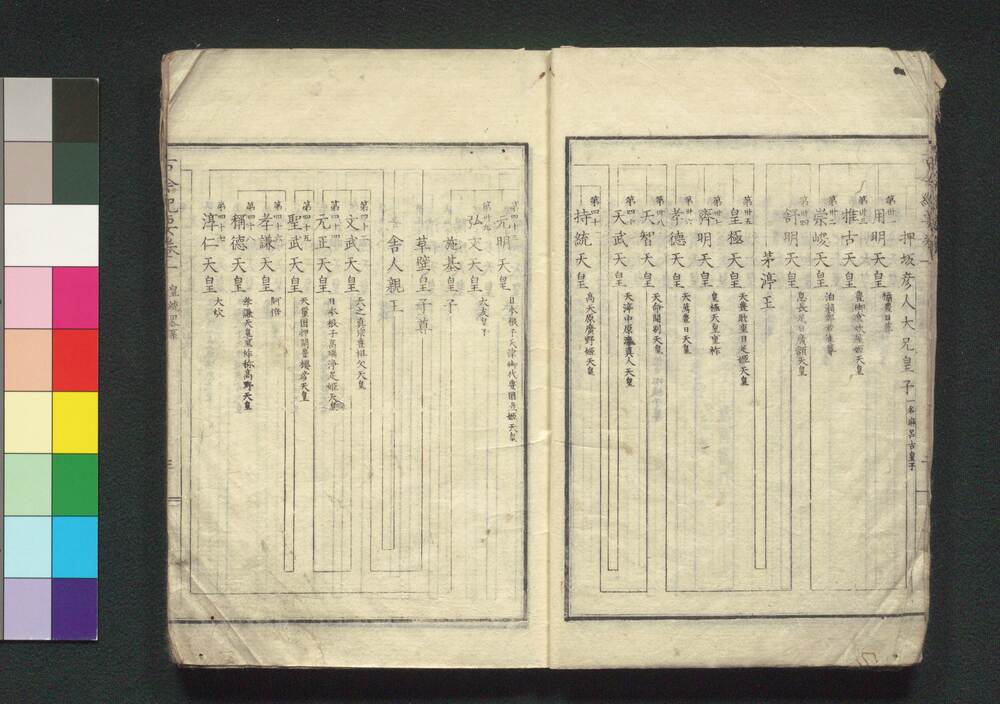 押坂彦人大兄皇子 一名麻呂古皇子
用明天皇 橘豊日尊
第卅三
推古天皇
第卅二
崇峻天皇
第卅四
舒明天皇 息長足日廣額天皇
茅渟王
第卅五
皇極天皇 天豊財重日足姫天皇
齊明天皇 皇極天皇重祚
第卅六
孝德天皇 天萬豊日天皇
第卅八
天智天皇 天命開別天皇
第四十
天武天皇 天渟中原瀛真人天皇
第四十一
持統天皇 高天原廣野姫天皇
第四十三
元明天皇 日本根子天津御代豊國成姫天皇
第卅九
弘文天皇 大友皇子
施基皇子
草壁皇子尊
舎人親王
第四十二
文武天皇
第四十四
元正天皇 日本根子高瑞浄足姫天皇
第四十五
聖武天皇 天璽國押開豊櫻彦天皇
第四十六
孝謙天皇 阿倍
第四十八
稱德天皇 孝謙天皇重祚称高野天皇
第四十七
淳仁天皇 大炊